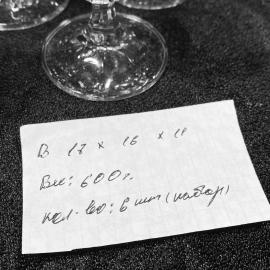 В 17 х 16 х 11
Вес: 600 г.
кол-во: 6 шт (набор)